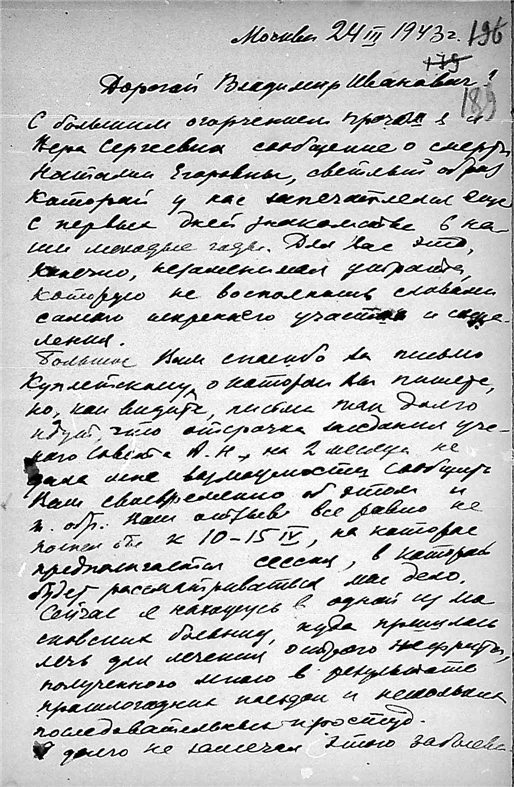 Москва 24 III 1943 г. 196
179
Дорогой Владимир Иванович!
189
С большим огорчением прочли я и
Вера Сергеевна сообщение о смерти
Наталии Егоровны, светлый образ
которой у нас запечатлелся еще
с первых дней знакомства в на-
ши молодые годы. Для Вас это,
конечно, незаменимая утрата,
которую не восполнишь словами
самого искреннего участия и сожа-
ления.
Большое Вам спасибо за письмо
Куплетскому, о котором Вы пишете,
но, как видите, письма так долго
идут, что отсрочка заседания уче-
ного Совета А.Н. на 2 месяца не
дала мне возможности сообщить
Вам своевременно об этом и
т. обр. Ваш отзыв все равно не
к 10–15 IV, на которое
предполагается сессия, в которой
будет рассматриваться мое дело.
Сейчас я нахожусь в одной из мо-
сковских больниц, куда пришлось
лечь для лечения острого нефрита,
полученного мною в результате
прошлогодних поездок и нескольких
последовательных простуд.
Я долго не замечал этого заболева-